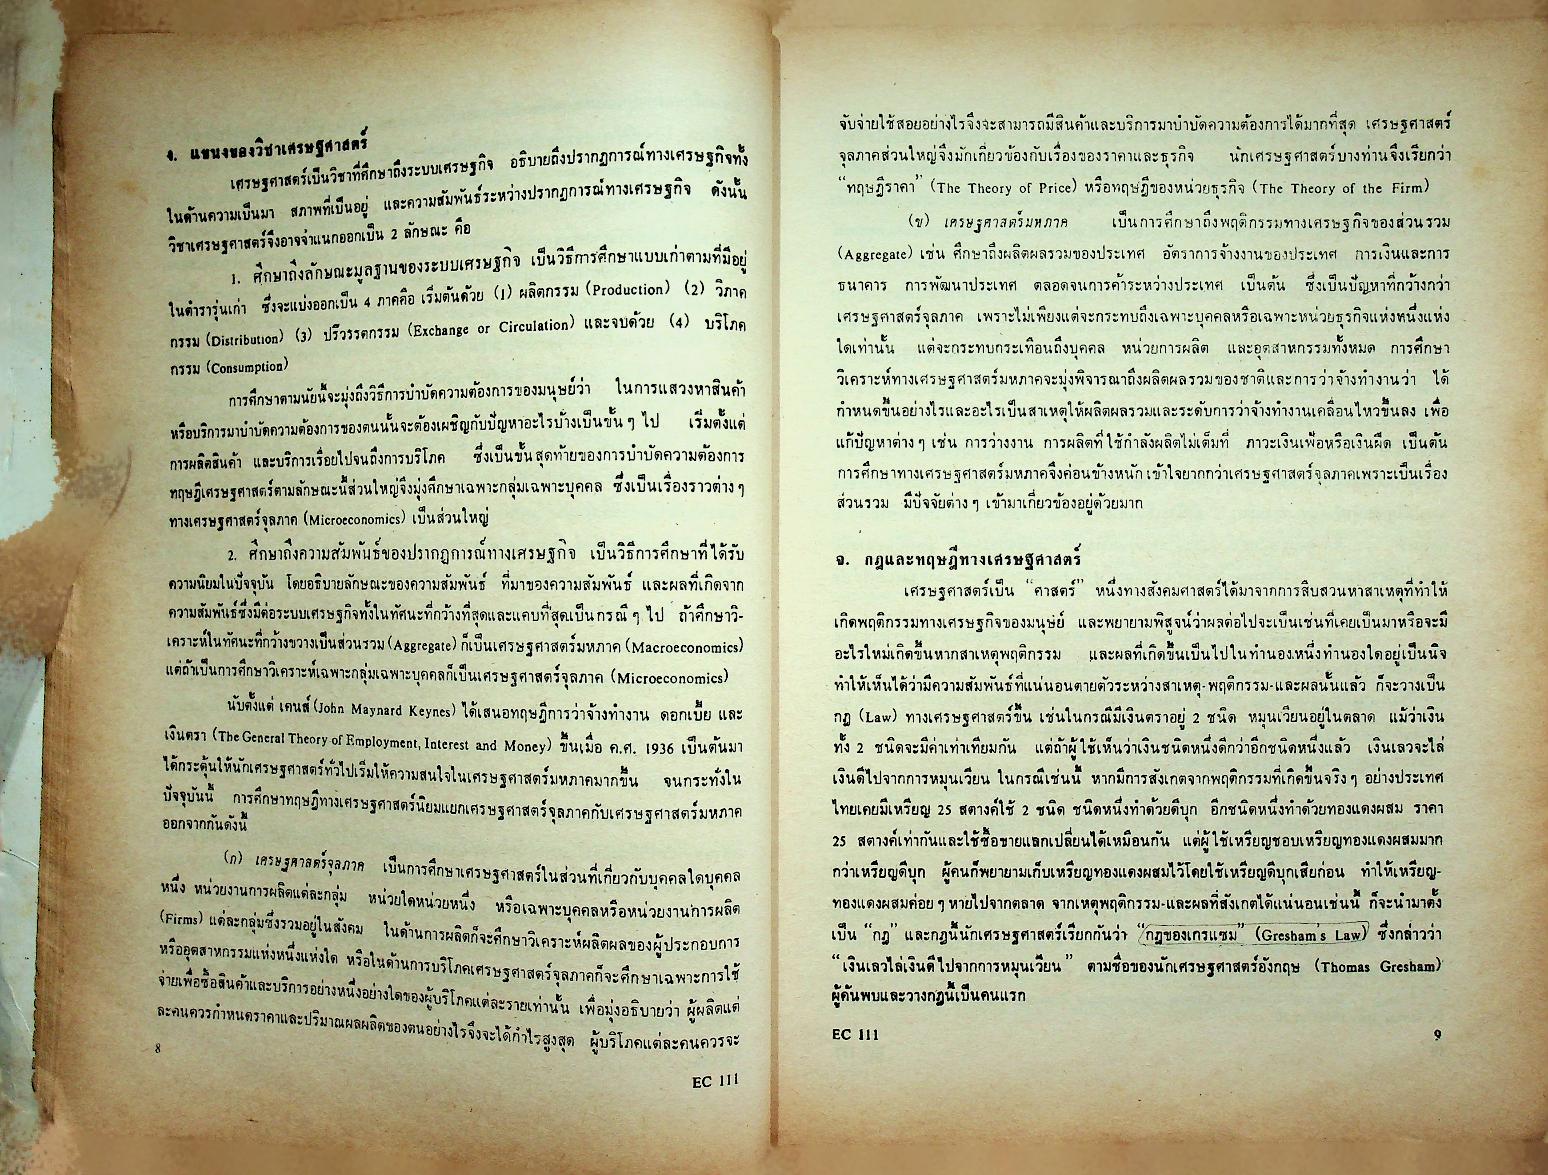 ง. แขนงของวิชาเศรษฐศาสตร์
เศรษฐศาสตร์เป็นวิชาที่ศึกษาถึงระบบเศรษฐกิจ อธิบายถึงปรากฏการณ์ทางเศรษฐกิจทั้ง
ในด้านความเป็นมา สภาพที่เป็นอยู่ และความสัมพันธ์ระหว่างปรากฏการณ์ทางเศรษฐกิจ ดังนั้น
วิชาเศรษฐศาสตร์จึงอาจจำแนกออกเป็น 2 ลักษณะ คือ
1. ศึกษาถึงลักษณะมูลฐานของระบบเศรษฐกิจ เป็นวิธีการศึกษาแบบเก่าตามที่มีอยู่
ในตำรารุ่นเก่า ซึ่งจะแบ่งออกเป็น 4 ภาคคือ เริ่มต้นด้วย (1) ผลิตกรรม (Production) (2) วิภาค
กรรม (Distribution) (3) ปริวรรตกรรม (Exchange or Circulation) และจบด้วย (4) บริโภค
กรรม (Consumption)
การศึกษาตามนัยนี้จะมุ่งถึงวิธีการบำบัดความต้องการของมนุษย์ว่า ในการแสวงหาสินค้า
หรือบริการมาบำบัดความต้องการของตนนั้นจะต้องเผชิญกับปัญหาอะไรบ้างเป็นขั้น ๆ ไป เริ่มตั้งแต่
การผลิตสินค้า และบริการเรื่อยไปจนถึงการบริโภค ซึ่งเป็นขั้นสุดท้ายของการบำบัดความต้องการ
ทฤษฎีเศรษฐศาสตร์ตามลักษณะนี้ส่วนใหญ่จึงมุ่งศึกษาเฉพาะกลุ่มเฉพาะบุคคล ซึ่งเป็นเรื่องราวต่าง ๆ
ทางเศรษฐศาสตร์จุลภาค (Microeconomics) เป็นส่วนใหญ่
2. ศึกษาถึงความสัมพันธ์ของปรากฏการณ์ทางเศรษฐกิจ เป็นวิธีการศึกษาที่ได้รับ
ความนิยมในปัจจุบัน โดยอธิบายลักษณะของความสัมพันธ์ ที่มาของความสัมพันธ์ และผลที่เกิดจาก
ความสัมพันธ์ซึ่งมีต่อระบบเศรษฐกิจทั้งในทัศนะที่กว้างที่สุดและแคบที่สุดเป็นกรณี ๆ ไป ถ้าศึกษาวิ-
เคราะห์ในทัศนะที่กว้างขวางเป็นส่วนรวม (Aggregate) ก็เป็นเศรษฐศาสตร์มหภาค (Macroeconomics)
แต่ถ้าเป็นการศึกษาวิเคราะห์เฉพาะกลุ่มเฉพาะบุคคลก็เป็นเศรษฐศาสตร์จุลภาค (Microeconomics)
นับตั้งแต่ เคนส์ (John Maynard Keynes) ได้เสนอทฤษฎีการว่าจ้างทำงาน ดอกเบี้ย และ
เงินตรา (The General Theory of Employment, Interest and Money) ขึ้นเมื่อ ค.ศ. 1936 เป็นต้นมา
ได้กระตุ้นให้นักเศรษฐศาสตร์ทั่วไปเริ่มให้ความสนใจในเศรษฐศาสตร์มหภาคมากขึ้น จนกระทั่งใน
ปัจจุบันนี้ การศึกษาทฤษฎีทางเศรษฐศาสตร์นิยมแยกเศรษฐศาสตร์จุลภาคกับเศรษฐศาสตร์มหภาค
ออกจากกันดังนี้
(ก) เศรษฐศาสตร์จุลภาค เป็นการศึกษาเศรษฐศาสตร์ในส่วนที่เกี่ยวกับบุคคลใดบุคคล
หนึ่ง หน่วยงานการผลิตแต่ละกลุ่ม หน่วยใดหน่วยหนึ่ง หรือเฉพาะบุคคลหรือหน่วยงานการผลิต
(Firms) แต่ละกลุ่มซึ่งรวมอยู่ในสังคม ในด้านการผลิตก็จะศึกษาวิเคราะห์ผลิตผลของผู้ประกอบการ
หรืออุตสาหกรรมแห่งหนึ่งแห่งใด หรือในด้านการบริโภคเศรษฐศาสตร์จุลภาคก็จะศึกษาเฉพาะการใช้
จ่ายเพื่อซื้อสินค้าและบริการอย่างหนึ่งอย่างใดของผู้บริโภคแต่ละรายเท่านั้น เพื่อมุ่งอธิบายว่า ผู้ผลิตแต่
ละคนควรกำหนดราคาและปริมาณผลผลิตของตนอย่างไรจึงจะได้กำไรสูงสุด ผู้บริโภคแต่ละคนควรจะ
8
EC 111
จับจ่ายใช้สอยอย่างไรจึงจะสามารถมีสินค้าและบริการมาบำบัดความต้องการได้มากที่สุด เศรษฐศาสตร์
จุลภาคส่วนใหญ่จึงมักเกี่ยวข้องกับเรื่องของราคาและธุรกิจ นักเศรษฐศาสตร์บางท่านจึงเรียกว่า
“ทฤษฎีราคา” (The Theory of Price) หรือทฤษฎีของหน่วยธุรกิจ (The Theory of the Firm)
(ข) เศรษฐศาสตร์มหภาค เป็นการศึกษาถึงพฤติกรรมทางเศรษฐกิจของส่วนรวม
(Aggregate) เช่น ศึกษาถึงผลิตผลรวมของประเทศ อัตราการจ้างงานของประเทศ การเงินและการ
ธนาคาร การพัฒนาประเทศ ตลอดจนการค้าระหว่างประเทศ เป็นต้น ซึ่งเป็นปัญหาที่กว้างกว่า
เศรษฐศาสตร์จุลภาค เพราะไม่เพียงแต่จะกระทบถึงเฉพาะบุคคลหรือเฉพาะหน่วยธุรกิจแห่งหนึ่งแห่ง
ใดเท่านั้น แต่จะกระทบกระเทือนถึงบุคคล หน่วยการผลิต และอุตสาหกรรมทั้งหมด การศึกษา
วิเคราะห์ทางเศรษฐศาสตร์มหภาคจะมุ่งพิจารณาถึงผลิตผลรวมของชาติและการว่าจ้างทำงานว่า ได้
กำหนดขึ้นอย่างไรและอะไรเป็นสาเหตุให้ผลิตผลรวมและระดับการว่าจ้างทำงานเคลื่อนไหวขึ้นลง เพื่อ
แก้ปัญหาต่าง ๆ เช่น การว่างงาน การผลิตที่ใช้กำลังผลิตไม่เต็มที่ ภาวะเงินเฟ้อหรือเงินฝืด เป็นต้น
การศึกษาทางเศรษฐศาสตร์มหภาคจึงค่อนข้างหนัก เข้าใจยากกว่าเศรษฐศาสตร์จุลภาคเพราะเป็นเรื่อง
ส่วนรวม มีปัจจัยต่าง ๆ เข้ามาเกี่ยวข้องอยู่ด้วยมาก
จ. กฎและทฤษฎีทางเศรษฐศาสตร์
เศรษฐศาสตร์เป็น “ศาสตร์” หนึ่งทางสังคมศาสตร์ได้มาจากการสืบสวนหาสาเหตุที่ทำให้
เกิดพฤติกรรมทางเศรษฐกิจของมนุษย์ และพยายามพิสูจน์ว่าผลต่อไปจะเป็นเช่นที่เคยเป็นมาหรือจะมี
อะไรใหม่เกิดขึ้นหากสาเหตุพฤติกรรม และผลที่เกิดขึ้นเป็นไปในทำนองหนึ่งทำนองใดอยู่เป็นนิจ
ทำให้เห็นได้ว่ามีความสัมพันธ์ที่แน่นอนตายตัวระหว่างสาเหตุ-พฤติกรรม-และผลนั้นแล้ว ก็จะวางเป็น
กฎ (Law) ทางเศรษฐศาสตร์ขึ้น เช่นในกรณีมีเงินตราอยู่ 2 ชนิด หมุนเวียนอยู่ในตลาด แม้ว่าเงิน
ทั้ง 2 ชนิดจะมีค่าเท่าเทียมกัน แต่ถ้าผู้ใช้เห็นว่าเงินชนิดหนึ่งดีกว่าอีกชนิดหนึ่งแล้ว เงินเลวจะไล่
เงินดีไปจากการหมุนเวียน ในกรณีเช่นนี้ หากมีการสังเกตจากพฤติกรรมที่เกิดขึ้นจริง ๆ อย่างประเทศ
ไทยเคยมีเหรียญ 25 สตางค์ใช้ 2 ชนิด ชนิดหนึ่งทำด้วยดีบุก อีกชนิดหนึ่งทำด้วยทองแดงผสม ราคา
25 สตางค์เท่ากันและใช้ซื้อขายแลกเปลี่ยนได้เหมือนกัน แต่ผู้ใช้เหรียญชอบเหรียญทองแดงผสมมาก
กว่าเหรียญดีบุก ผู้คนก็พยายามเก็บเหรียญทองแดงผสมไว้โดยใช้เหรียญดีบุกเสียก่อน ทำให้เหรียญ-
ทองแดงผสมค่อย ๆ หายไปจากตลาด จากเหตุพฤติกรรม-และผลที่สังเกตได้แน่นอนเช่นนี้ ก็จะนำมาตั้ง
เป็น “กฎ” และกฎนี้นักเศรษฐศาสตร์เรียกกันว่า “กฎของเกรแชม” (Gresham's Law) ซึ่งกล่าวว่า
“เงินเลวไล่เงินดีไปจากการหมุนเวียน” ตามชื่อของนักเศรษฐศาสตร์อังกฤษ (Thomas Gresham)
ผู้ค้นพบและวางกฎนี้เป็นคนแรก
EC 111
9